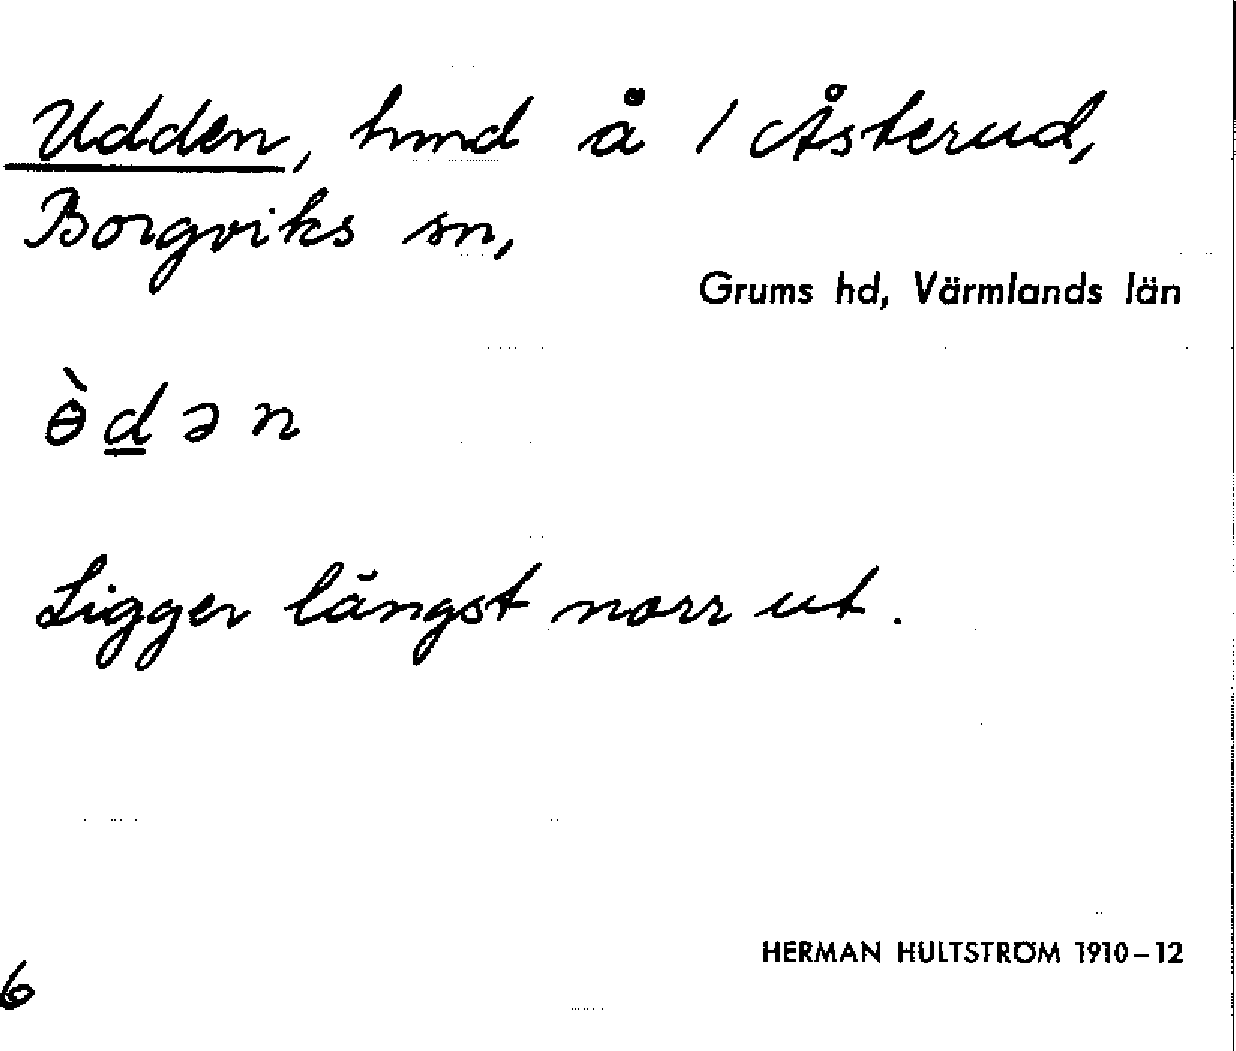 Udden, hmd å 1 Åsterud,
Borgviks sn,
Grums hd, Värmlands län
ɵ̀d̲ən
Ligger längst norr ut.
HERMAN HULTSTRÖM 1910–12
6